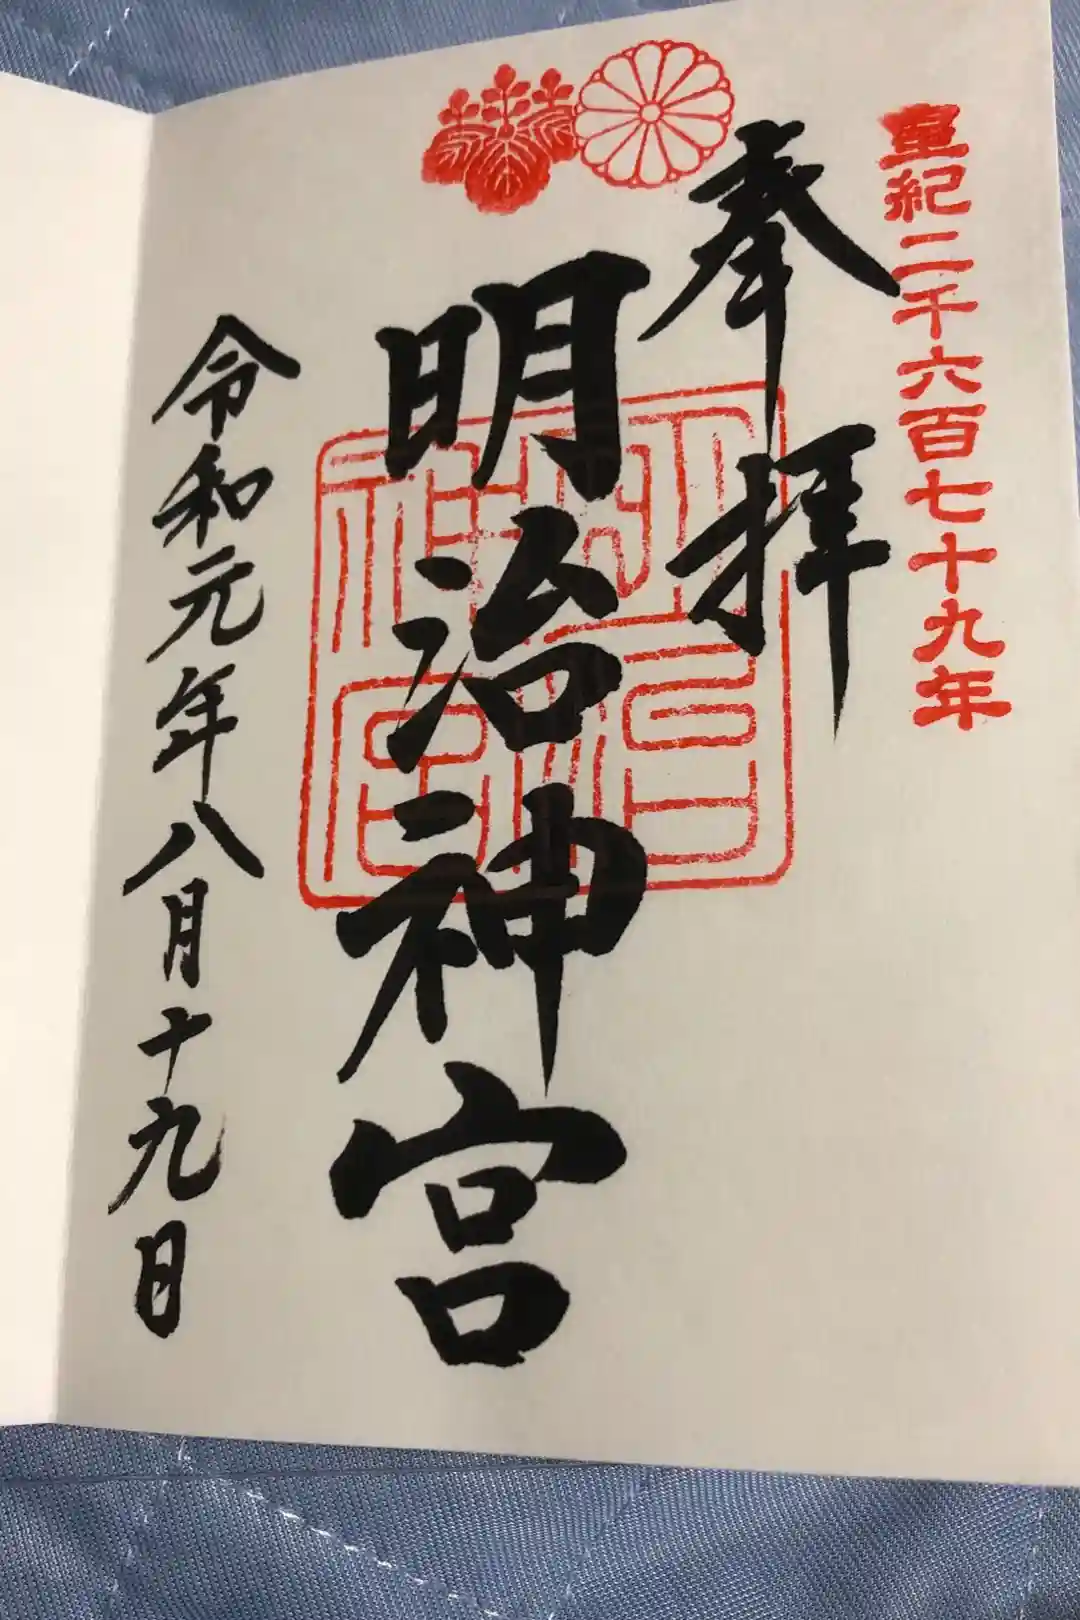 皇紀二千六百七十九年
奉拝
明治神宮
令和元年八月十九日